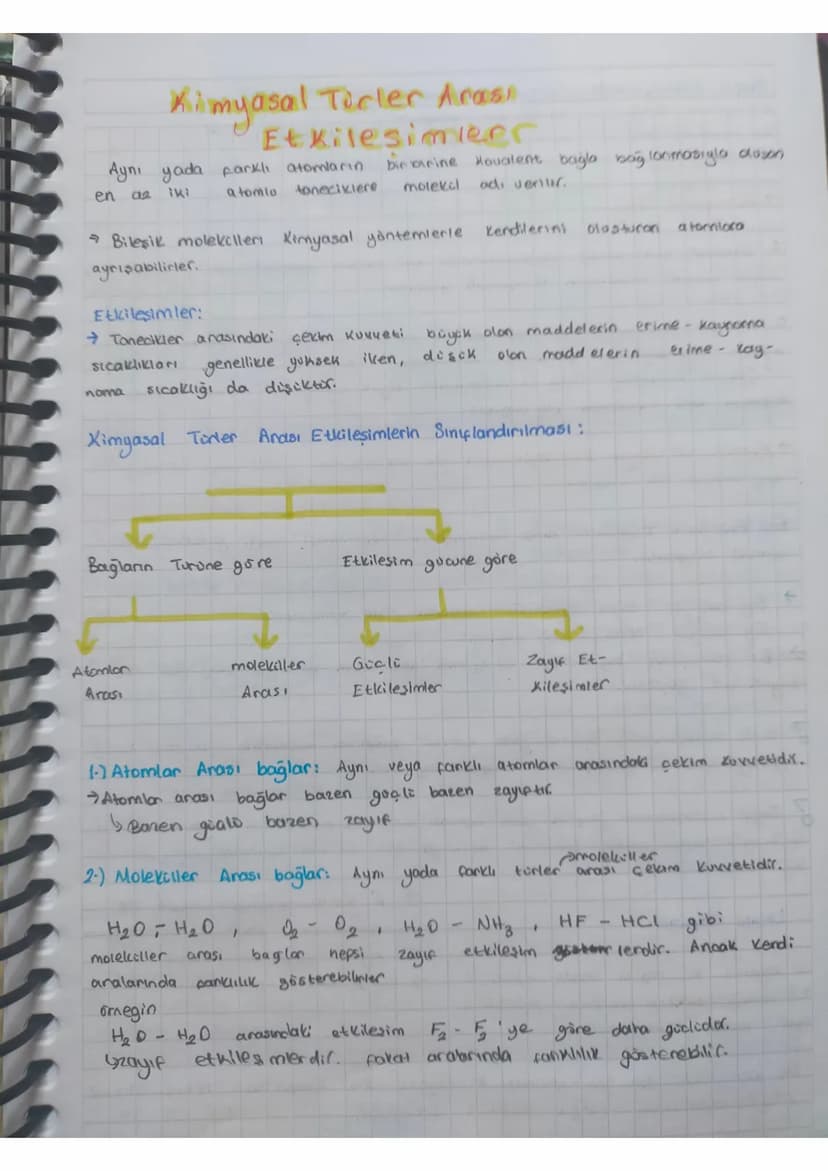 Kimyasal Türler Arası
Etkileşimler
Aynı yada farklı atomların birbirine kovalent bağla bağlanmasıyla oluşan
en az iki atomlu taneciklere molekül adı verilir.
→ Bileşik molekülleri kimyasal yöntemlerle kendilerini oluşturan atomlara
ayrışabilirler.
Etkileşimler:
→ Tanecikler arasındaki çekim kuvveti büyük olan maddelerin erime - kaynama
sıcaklıkları genellikle yüksek iken, düşük olan maddelerin erime - kay-
nama sıcaklığı da düşüktür.
Kimyasal Türler Arası Etkileşimlerin Sınıflandırılması:
Bağların Türüne göre Etkileşim gücüne göre
Atomlar moleküller Güçlü Zayıf Et-
Arası Arası Etkileşimler kileşimler
1-) Atomlar Arası bağlar: Aynı veya farklı atomlar arasındaki çekim kuvvetidir.
→ Atomlar arası bağlar bazen güçlü bazen zayıftır.
↳ Bazen güçlü bazen zayıf
moleküller
2-) Moleküller Arası bağlar: Aynı yada farklı türler arası çekim kuvvetidir.
H₂O - H₂O, O₂ - O₂, H₂O - NH₃, HF - HCl gibi
moleküller arası bağlar hepsi zayıf etkileşim lerdir. Ancak kendi
aralarında farklılık gösterebilirler
örnegin
H₂O - H₂O arasındaki etkileşim F₂ - F₂'ye göre daha güçlüdür.
↳ zayıf etkileşimlerdir. fakat aralarında farklılık gösterebilir.